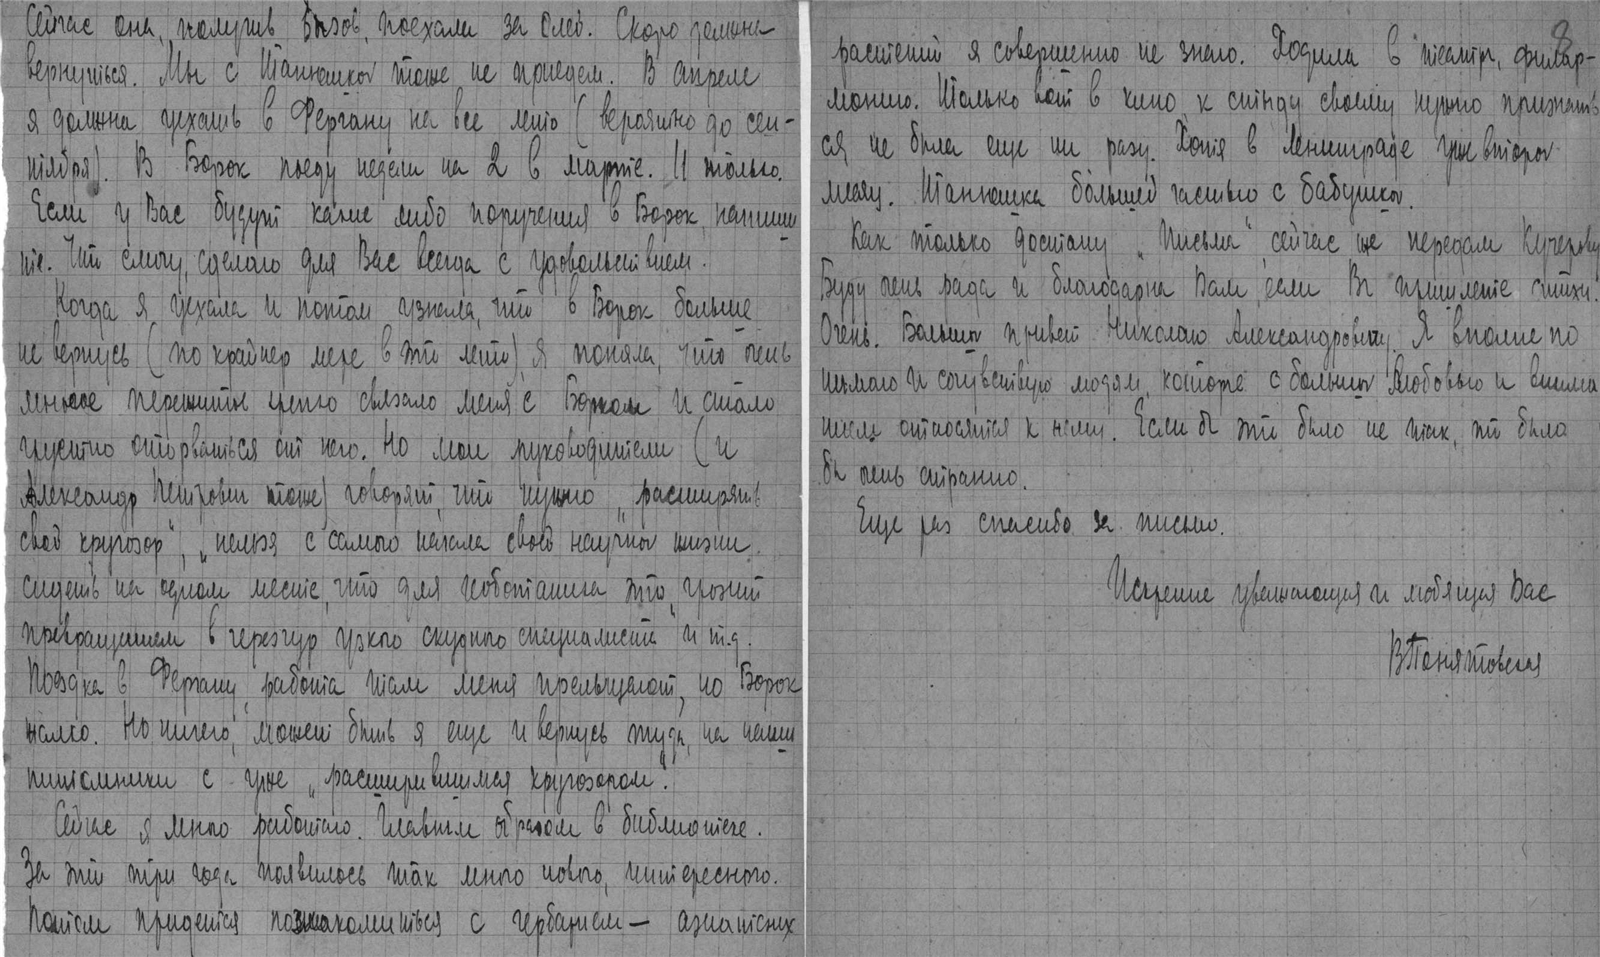 Сейчас она, получив вызов, поехала за Олей. Скоро должна
вернуться. Мы с Танюшкой тоже не приедем. В апреле
я должна уехать в Фергану на все лето (вероятно до сен-
тября). В Борок поеду недели на 2 в марте. И только.
Если у Вас будут какие либо поручения в Борок, напиши
те. Что смогу, сделаю для Вас всегда с удовольствием.
Когда я уехала и потом узнала, что в Борок больше
не вернусь (по крайней мере в это лето), я поняла, что очень
многое пережитое крепко связало меня с Борком и стало
грустно оторваться от него. Но мои руководители (и
Александр Петрович тоже) говорят, что нужно „расширять
свой кругозор", „нельзя с самого начала своей научной жизни
сидеть на одном месте, что для геоботаника это грозит
превращением в чересчур узкого скудного специалиста" и т.д.
Поездка в Фергану, работа там меня прельщают, но Борок
жалко. Но ничего, может быть я еще и вернусь туда, на наши
питомники с уже „расширившимся кругозором".
Сейчас я много работаю. Главным образом в библиотеке.
За эти три года появилось так много нового, интересного.
Потом придется познакомиться с гербарием — азиатских
8
растений я совершенно не знаю. Ходила в театр, филар-
монию. Только вот в кино, к стыду своему нужно признать
ся, не была еще ни разу. Хотя в Ленинграде уже второй
месяц. Танюшка большей частью с бабушкой.
Как только достану „Письма", сейчас же передам Кучерову
Буду очень рада и благодарна Вам, если Вы пришлете стихи.
Очень. Большой привет Николаю Александровичу. Я вполне по
нимаю и сочувствую людям, которые с большой любовью и внима
нием относятся к нему. Если бы это было не так, это было
бы очень странно.
Еще раз спасибо за письмо.
Искренне уважающая и любящая Вас
ВПонятовская